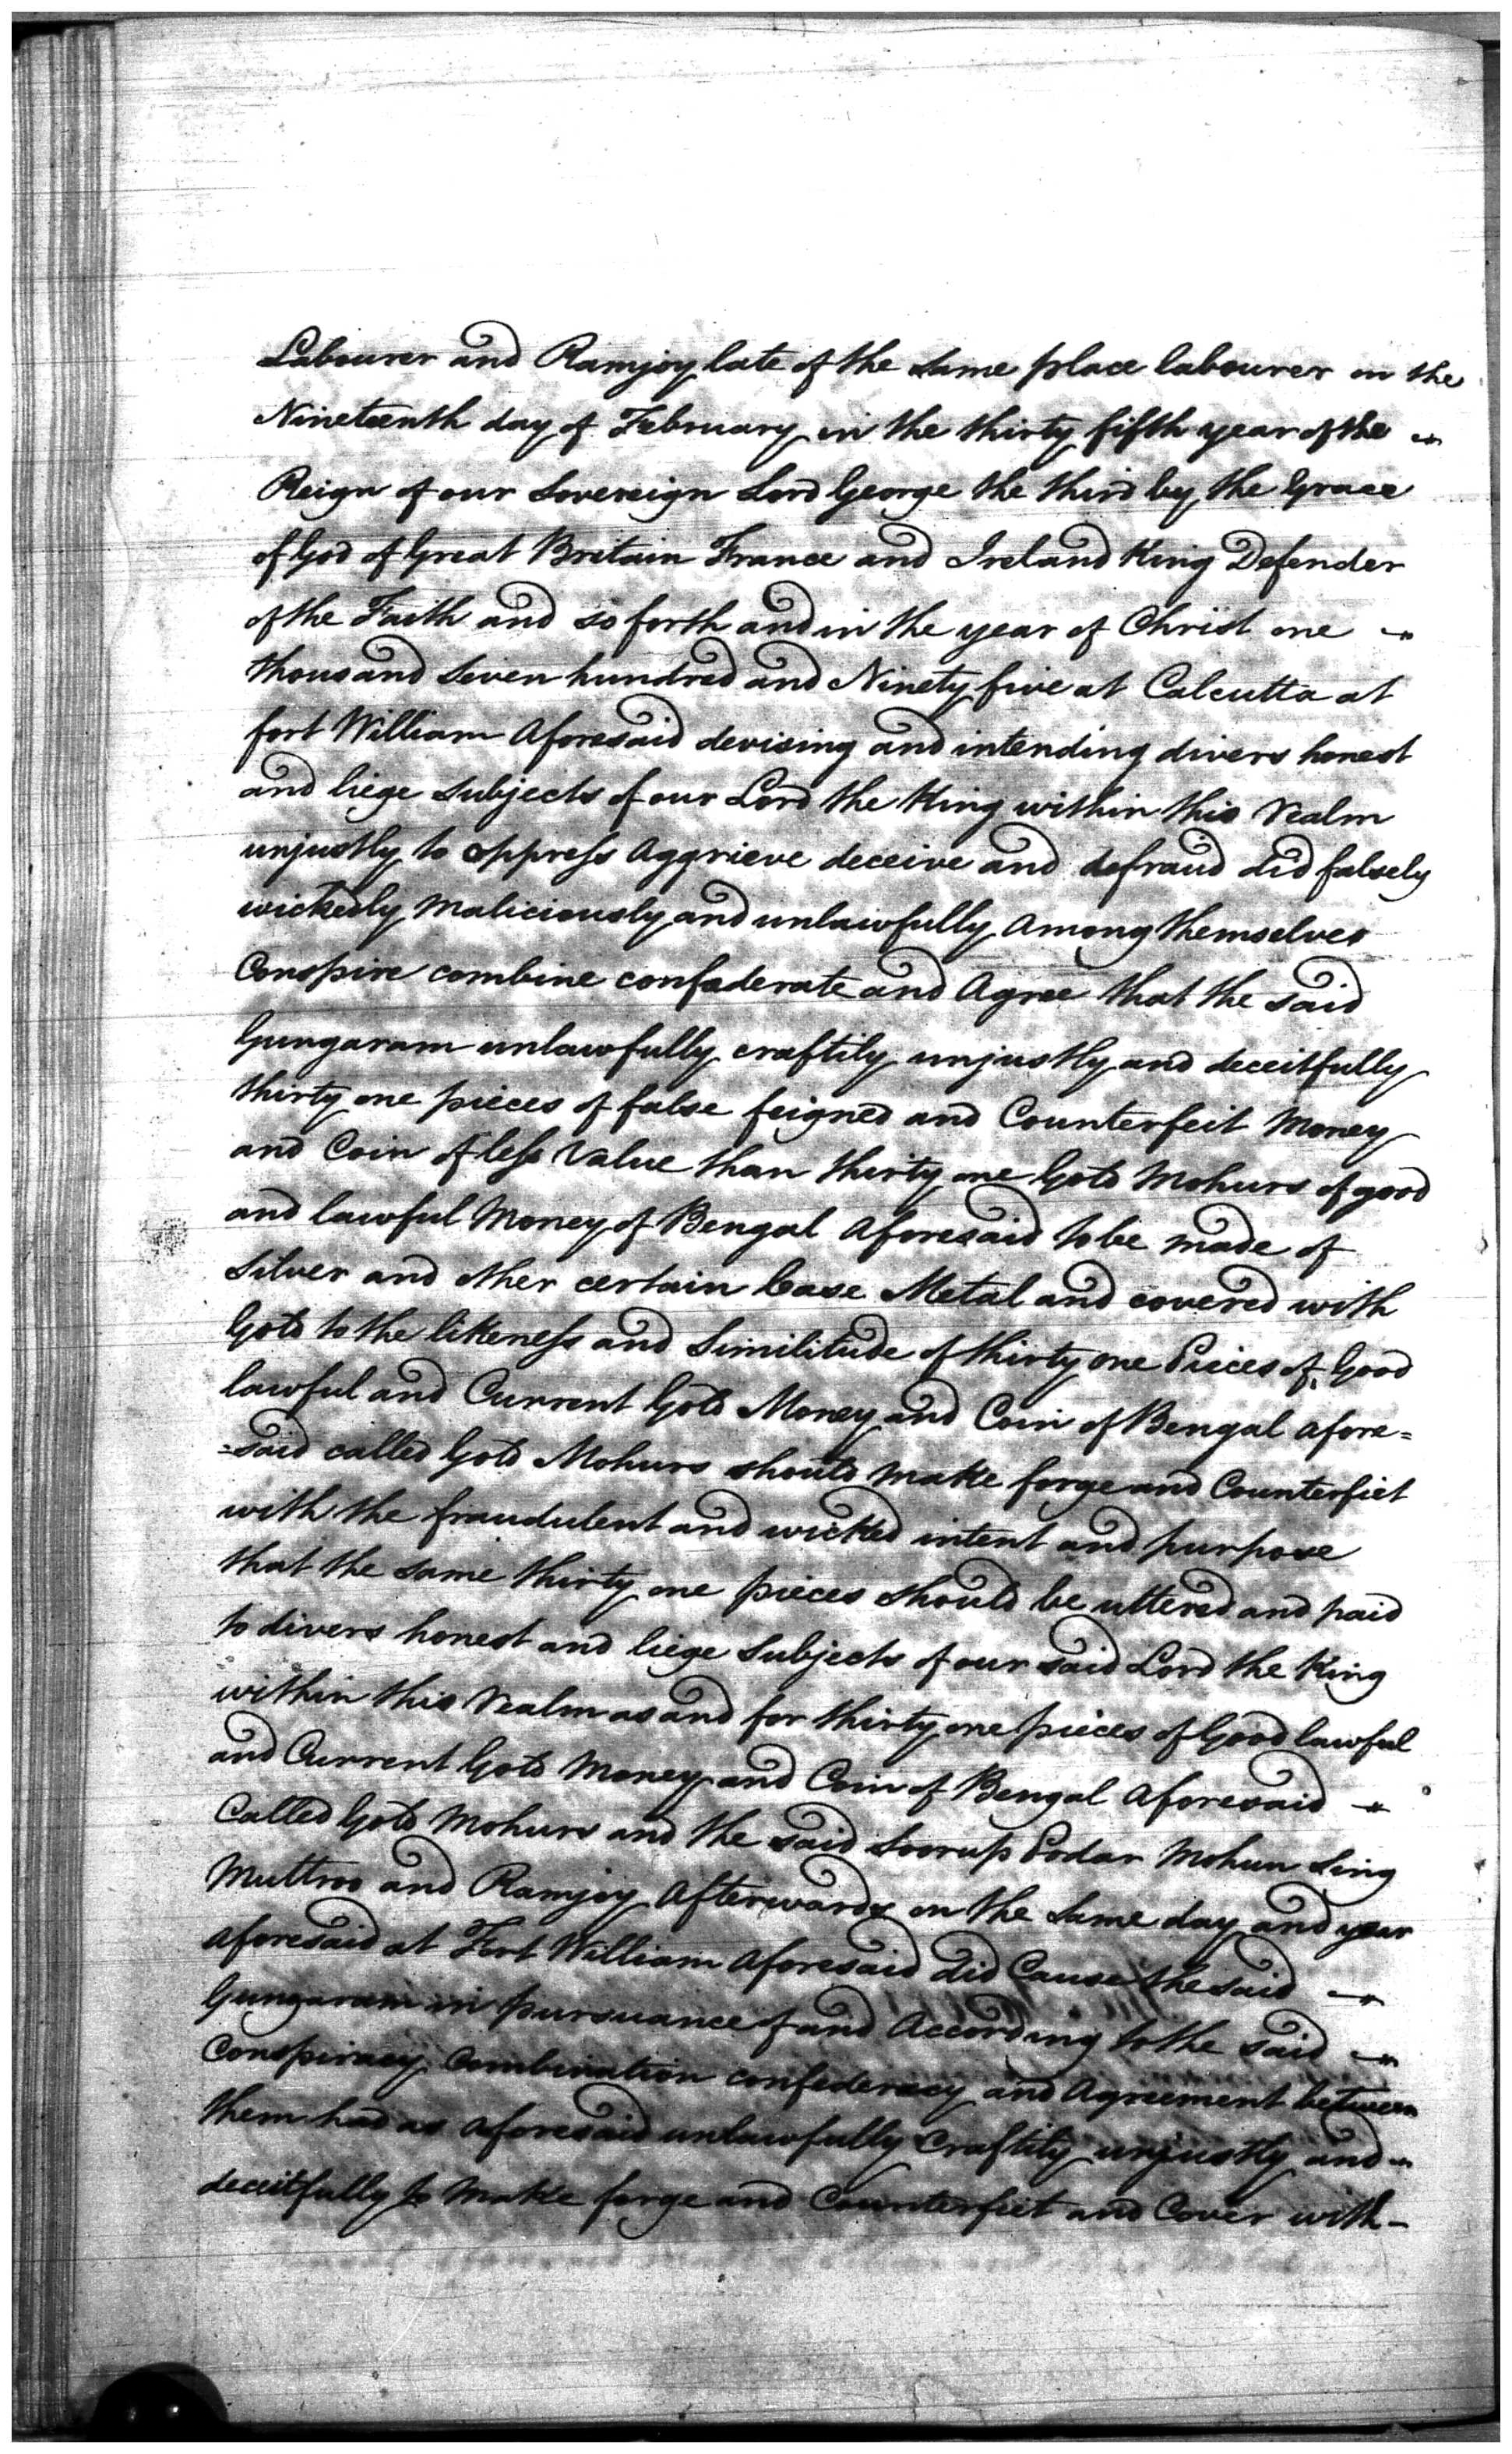 Labourer and Ramjoy late of the same place labourer on the
Nineteenth day of February in the thirty fifth year of the
Reign of our Sovereign Lord George the third by the Grace
of God of Great Britain France and Ireland King Defender
of the Faith and so forth and in the year of Christ one
thousand seven hundred and Ninety five at Calcutta at
fort William Aforesaid devising and intending divers honest
and liege Subjects of our Lord the King within this Realm
unjustly to oppress Aggrieve deceive and defraud did falsely
wickedly Maliciously and unlawfully Among themselves
Conspire combine confederate and Agree that the said
Gungaram unlawfully craftily unjustly and deceitfully
thirty one pieces of false feigned and Counterfeit Money
and Coin of less Value than thirty one Gold Mohurs of good
and lawful Money of Bengal Aforesaid to be made of
Silver and other certain base Metal and covered with
Gold to the likeness and Similitude of thirty one Pieces of Good
lawful and Current Gold Money and Coin of Bengal afore=
=said called Gold Mohurs should make forge and Counterfiet
with the fraudulent and wicked intent and purpose
that the same thirty one pieces should be uttered and paid
to divers honest and liege Subjects of our said Lord the King
within this Realm as and for thirty one pieces of Good lawful
and Current Gold Money and Coin of Bengal Aforesaid
Called Gold Mohurs and the said Soorup Podar Mohun Sing
Muttroo and Ramjoy Afterwards on the Same day and year
aforesaid at Fort William aforesaid did Cause the said
Gungaram in pursuance of and According to the said
Conspiracy Combination confederacy and Agreement between
them had as aforesaid unlawfully Craftily unjustly and
deceitfully to Make forge and Counterfiet and Cover with